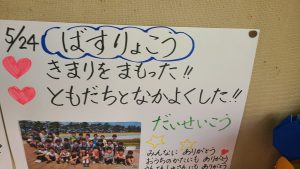 5/24 ばすりょこう
きまりをまもった!!
ともだちとなかよくした!!
だいせいこう
みんなに ありがとう
おうちのかたにも ありがとう